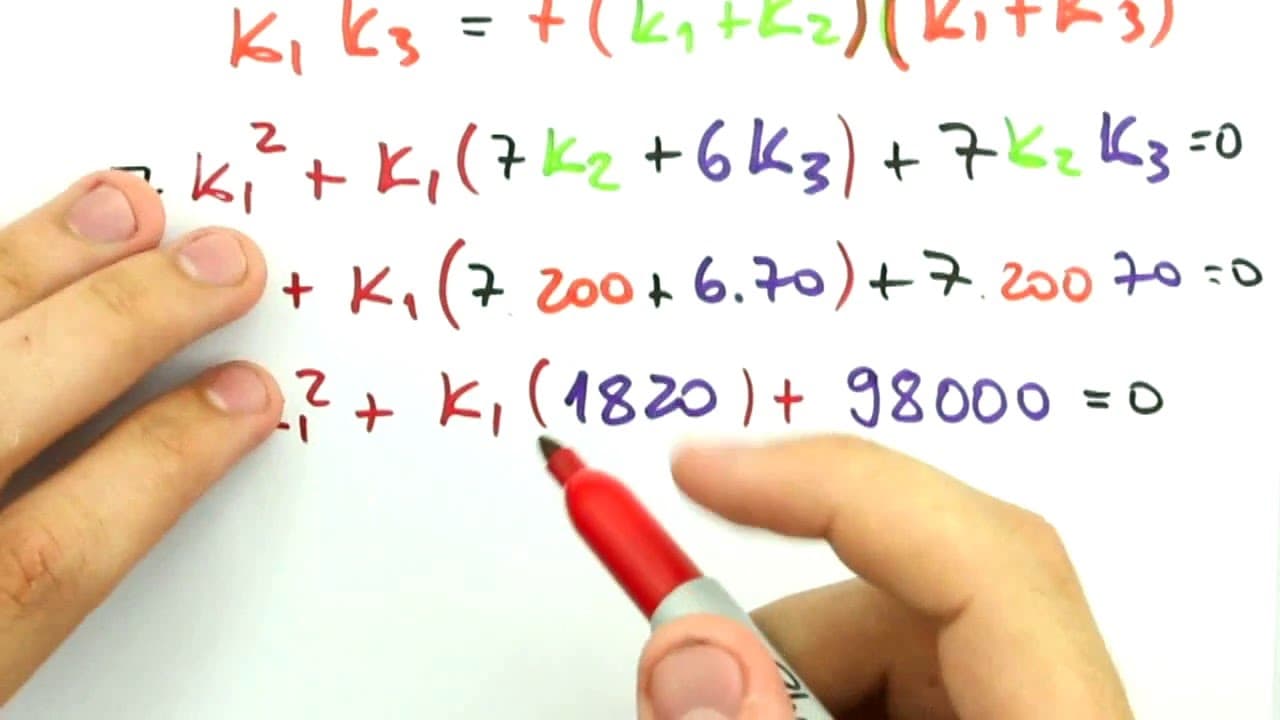 K₁ K₃ = 7(K₁+K₂)(K₁+K₃)
K₁² + K₁(7K₂ + 6K₃) + 7K₂K₃ =0
+ K₁(7 200 + 6.70) + 7.200 70 =0
₁² + K₁(1820) + 98000 = 0